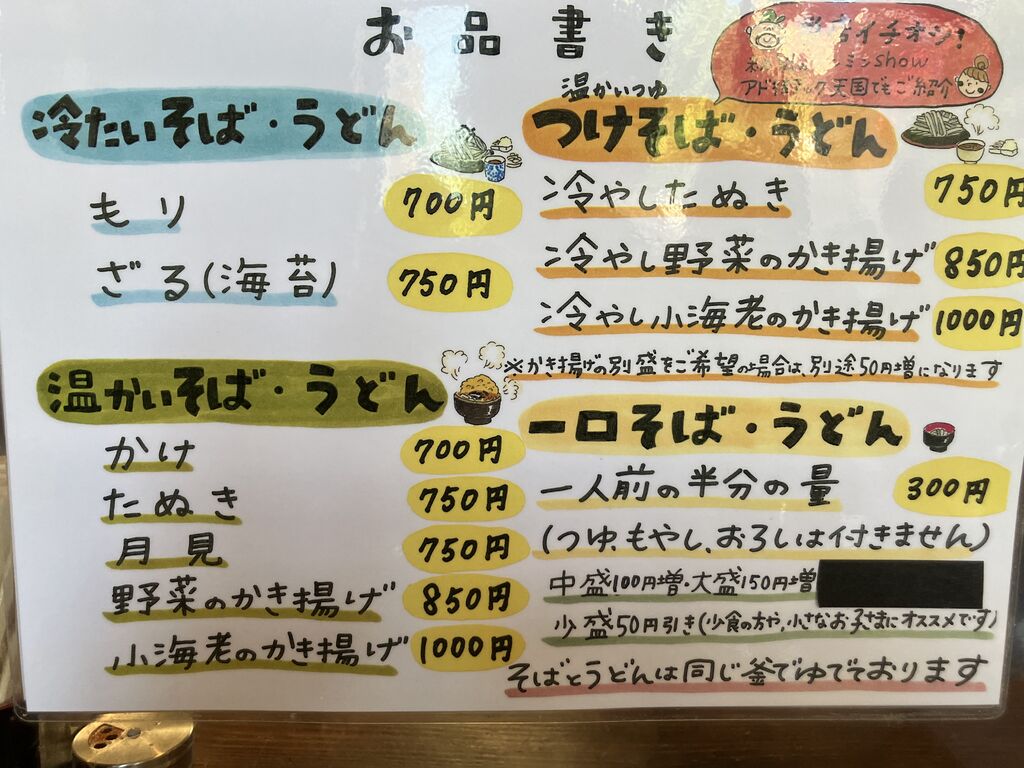 お品書き
イチオシ!
show
アド 天国でもご紹介
冷たいそば・うどん
もり 700円
ざる(海苔) 750円
温かいそば・うどん
かけ 700円
たぬき 750円
月見 750円
野菜のかき揚げ 850円
小海老のかき揚げ 1000円
温かいつゆ
つけそば・うどん
冷やしたぬき 750円
冷やし野菜のかき揚げ 850円
冷やし小海老のかき揚げ 1000円
※かき揚げの別盛をご希望の場合は、別途50円増になります
一口そば・うどん
一人前の半分の量 300円
(つゆ、もやし、おろしは付きません)
中盛100円増・大盛150円増
少盛50円引き(少食の方や、小さなお子さまにオススメです)
そばとうどんは同じ釜でゆでております